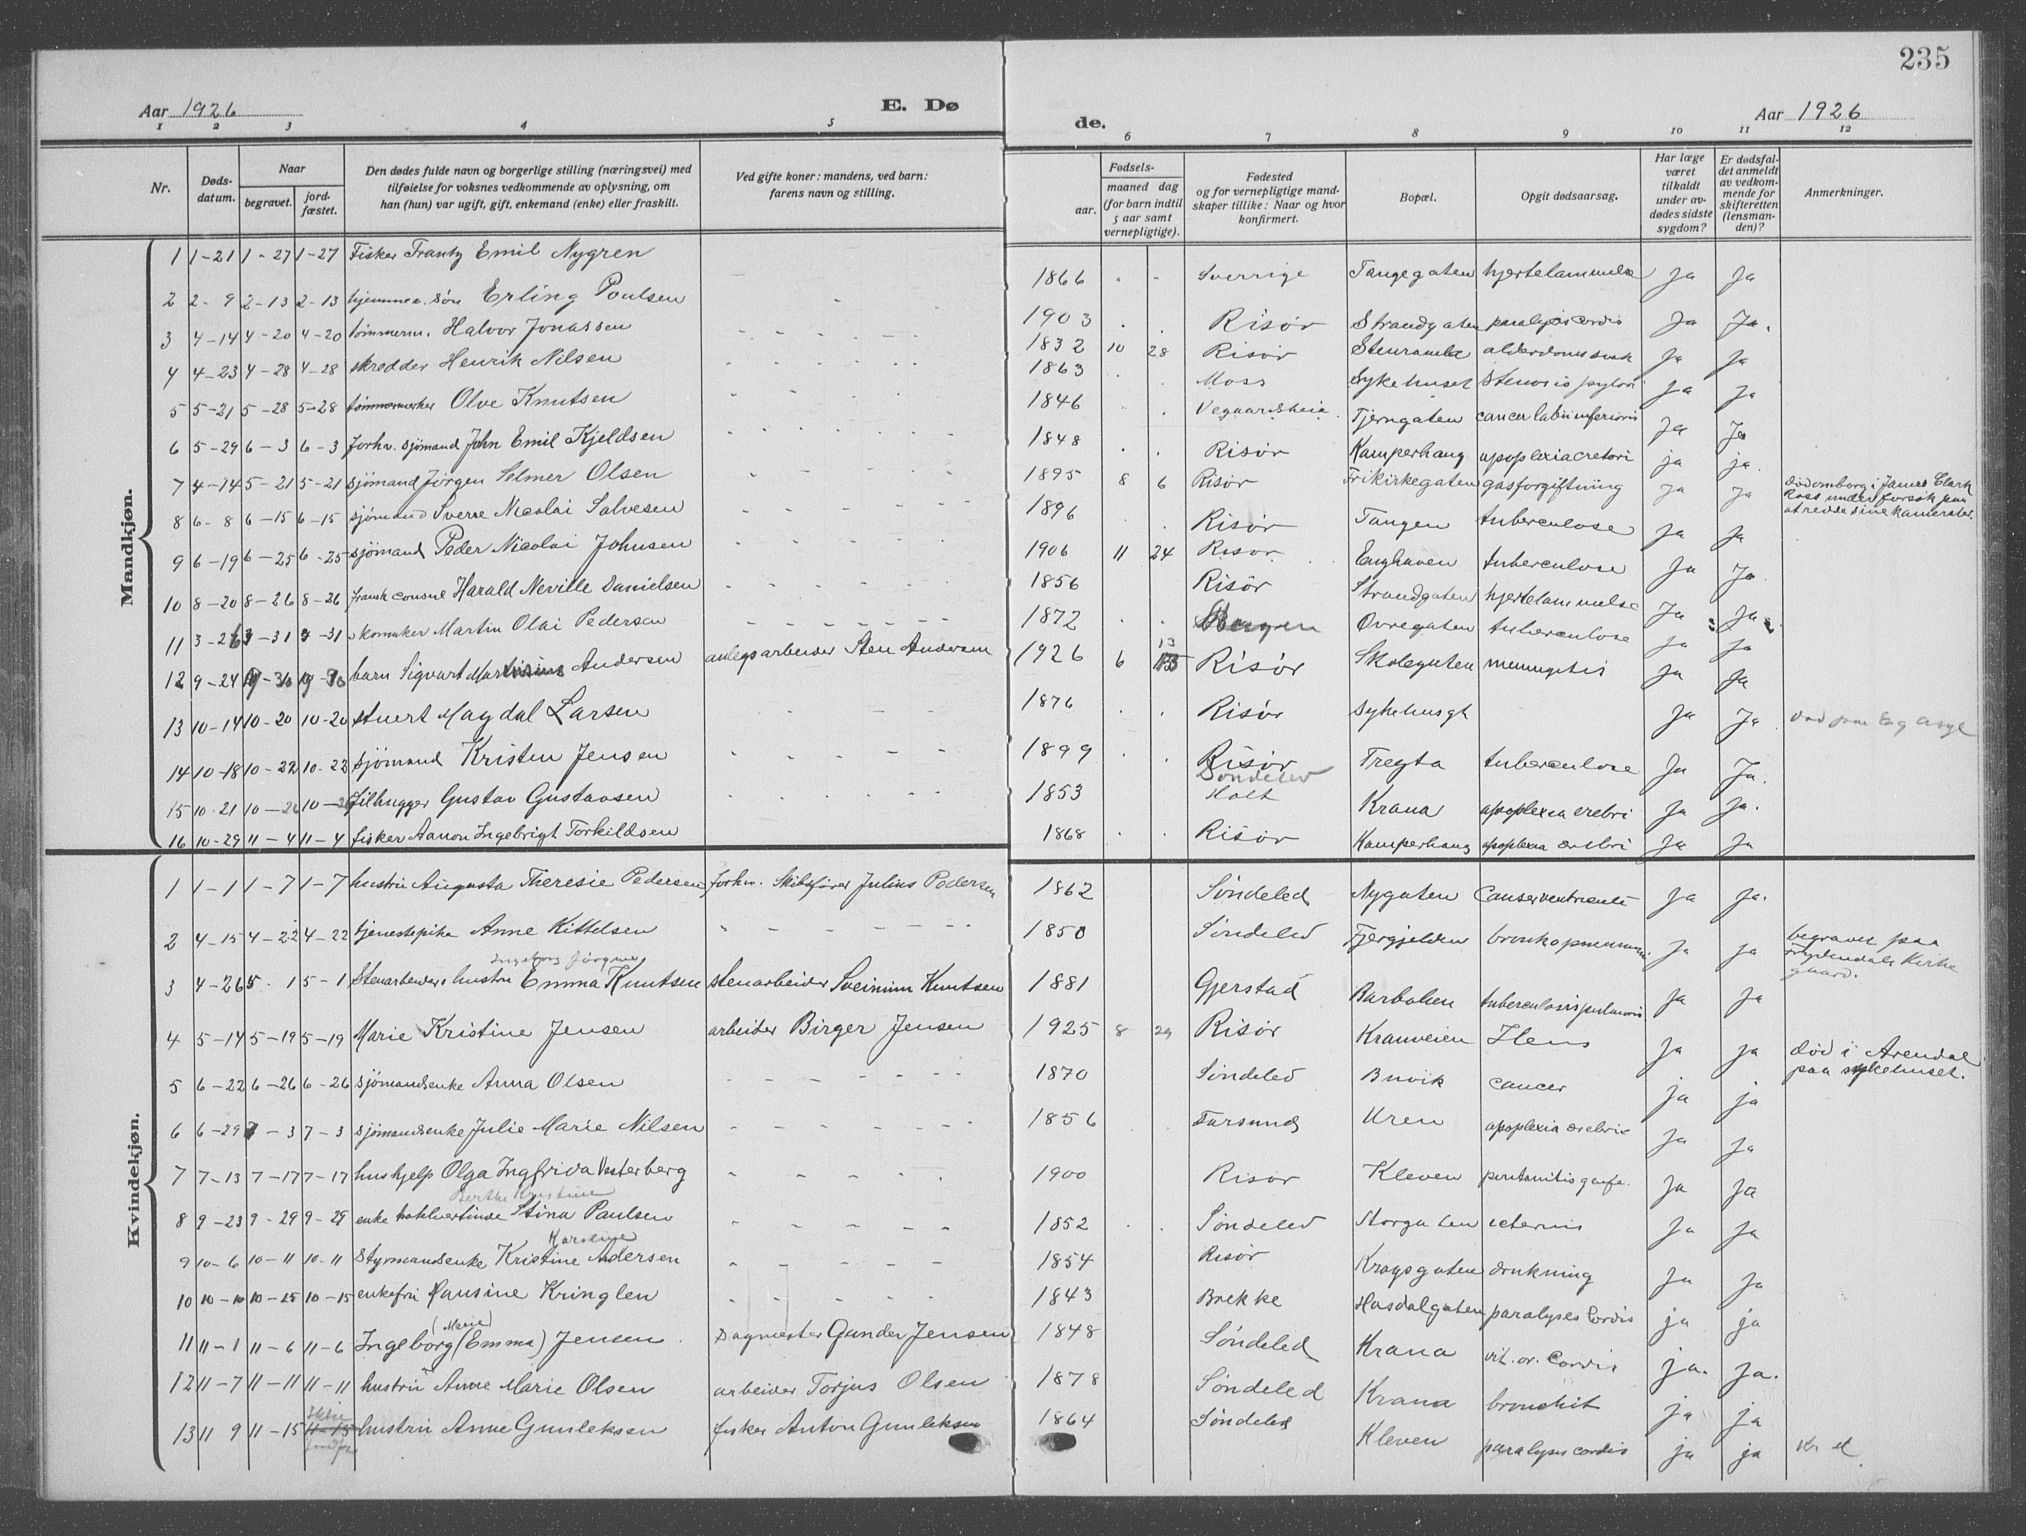 235
Aar 1926 E. Dø de. Aar 1926
1 2 3 4 5 6 7 8 9 10 11 12
Nr.
Døds-datum.
Naar begravet. jord-fæstet.
Den dødes fulde navn og borgerlige stilling (næringsvei) med tilføielse for voksnes vedkommende av oplysning, om han (hun) var ugift, gift, enkemand (enke) eller fraskilt.
Ved gifte koner: mandens, ved barn: farens navn og stilling.
Fødsels- aar. maaned dag (for barn indtil 5 aar samt vernepligtige).
Fødested og for vernepligtige mandskaper tillike: Naar og hvor konfirmert.
Bopæl.
Opgit dødsaarsag.
Har læge været tilkaldt under avdødes sidste sygdom?
Er dødsfaldet anmeldt av vedkommende for skifteretten (lensmanden)?
Anmerkninger.
Mandkjøn.
1 1-21 1-27 1-27 Fisker Frantz Emil Nygren 1866 Sverrige Tangegaten hjertelammelse Ja Ja
2 2-9 2-13 2-13 hjemmev. søn Erling Poulsen 1903 Risør Strandgaten paralysis cordis Ja Ja.
3 4-14 4-20 4-20 tømmerm. Halvor Jonassen 1832 10 28 Risør Stenramla alderdomssvak Ja Ja
4 4-23 4-28 4-28 skredder Henrik Nilsen 1863 Moss Sykehuset stenosis pylori Ja Ja
5 5-21 5-28 5-28 Olve Knutsen 1846 Vegaardsheia Tjerngaten cancer labii inferioris Ja Ja
6 5-29 6-3 6-3 forhv. sjømand John Emil Kjeldsen 1848 Risør Kamperhaug apoplexia ja ja.
7 4-14 5-21 5-21 sjømand Jørgen Selmer Olsen 1895 8 6 Risør Frikirkegaten gasforgiftning ja ja død ombord i James Clark Ross under forsøk paa at redde sine kamerater.
8 6-8 6-15 6-15 sjømand Sverre Nicolai Salvesen 1896 Risør Tangen tuberculose Ja Ja
9 6-19 6-25 6-25 sjømand Peder Nicolai Johnsen 1906 11 24 Risør Enghaven tuberculose Ja Ja.
10 8-20 8-26 8-26 fransk consul Harald Neville Danielsen 1856 Risör Strandgaten hjertelammelse Ja Ja
11 3-26 3-31 3-31 skomaker Martin Olai Pedersen 1872 Bergen Øvregaten tuberculose Ja Ja
12 9-24 barn Sigvart Martinius Andersen anlegsarbeider Sten Andersen 1926 6 13 Risør Skolegaten meningitis Ja Ja
13 10-14 10-20 10-20 stuert Magdal Larsen 1876 Risør Sykehusgt Ja Ja død paa Eg asyl
14 10-18 10-22 10-22 sjømand Kristen Jensen 1899 Risør Tregta tuberculose Ja Ja.
15 10-21 10-26 10-26 filhugger Gustav Gustavsen 1853 Søndeled Holt Krana apoplexia cerebri Ja Ja.
16 10-29 11-4 11-4 fisker Aanon Ingebrigt Torkildsen 1868 Risør Kamperhaug apoplexia cerebri Ja Ja
Kvindekjøn.
1 1-1 1-7 1-7 hustru Augusta Theresie Pedersen forhv. Skibsfører Julius Pedersen 1862 Søndeled Nygaten Ja Ja.
2 4-15 4-22 4-22 tjenestepike Anne Kittelsen 1850 Søndeled Tjergjelden bronkopneumoni Ja Ja begravet paa Frydendals Kirkegaard.
Ingeborg Jørgine
3 4-26 5-1 5-1 Stenarbeiders hustru Emma Knutsen stenarbeider Sveinum Knutsen 1881 Gjerstad Barbohen tuberculosis pulmonis Ja Ja
4 5-14 5-19 5-19 Marie Kristine Jensen arbeider Birger Jensen 1925 8 29 Risør Kranveien Ilens Ja Ja
5 6-22 6-26 6-26 sjømandsenke Anna Olsen 1870 Søndeled Buvik cancer ja ja død i Arendal paa sykehuset.
6 6-29 7-3 7-3 sjømandsenke Julie Marie Nilsen 1856 Farsund Uren apoplexia cerebri Ja Ja
7 7-13 7-17 7-17 hushjelp Olga Ingfrida Vesterberg 1900 Risør Kleven Ja Ja
Berthe Kristine
8 9-23 9-29 9-29 enke Stina Paulsen 1852 Søndeled Storgaten icterus Ja Ja
Karoline
9 10-6 10-11 10-11 Styrmandsenke Kristine Andersen 1854 Risør Kragsgaten drukning Ja Ja
10 10-10 10-15 10-15 enkefru Pausine Kringlen 1843 Brekke Hasdalgaten paralyses Cordis ja ja
(Marie)
11 11-1 11-6 11-6 Ingeborg (Emma) Jensen Bagmester Gunder Jensen 1848 Søndeled Krana vit. or. Cordis ja. ja.
12 11-7 11-11 11-11 hustru Anne Marie Olsen arbeider Torjus Olsen 1878 Søndeled Krana bronchit ja ja
13 11 9 11-15 ikke 11-15 jordf. hustru Anne Gunleksen fisker Anton Gunleksen 1864 Søndeled Kleven paralysis cordis ja ja